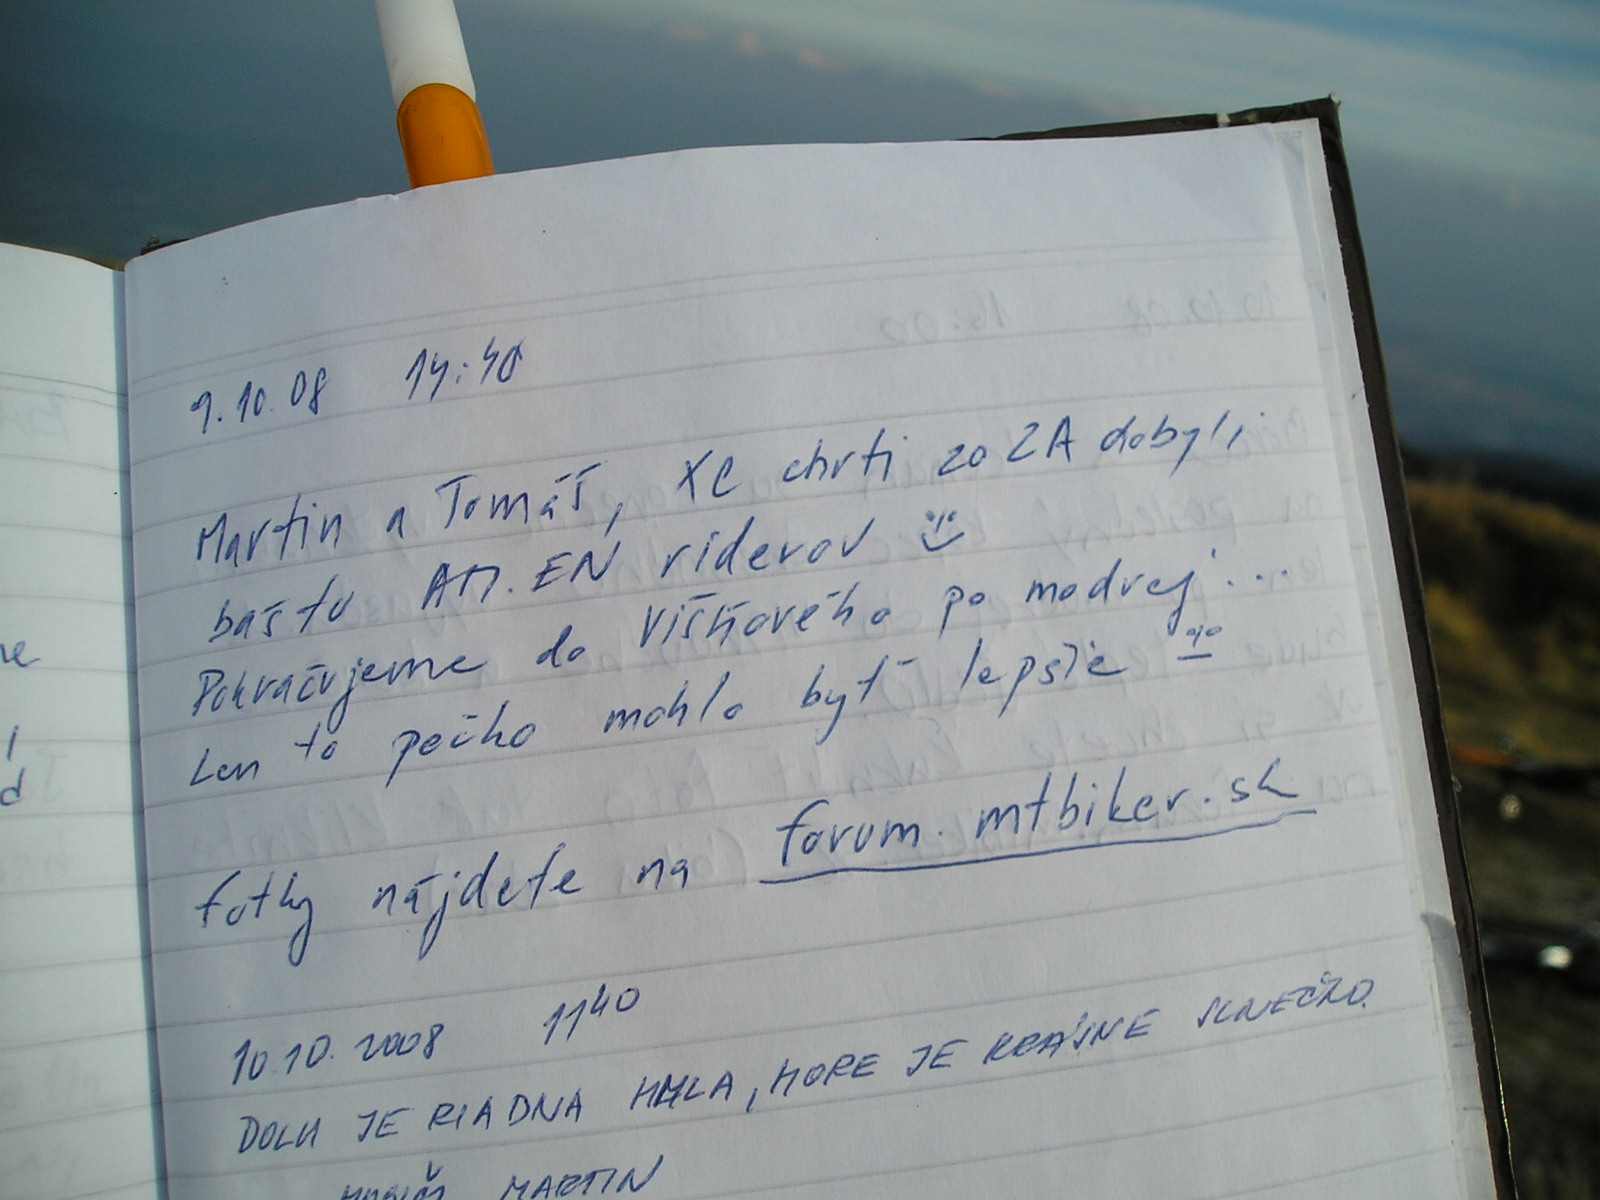 9.10.08 14:40
Martin a Tomáš, XC chrti zo ZA dobyli
baštu AM. EN riderov
Pokračujeme do Višňového po modrej...
Len to pečko mohlo byť lepšie
fotky nájdete na forum.mtbiker.sk
10.10.2008 11⁴⁰
DOLU JE RIADNA HMLA, HORE JE KRÁSNE SLNEČKO.
MARTIN